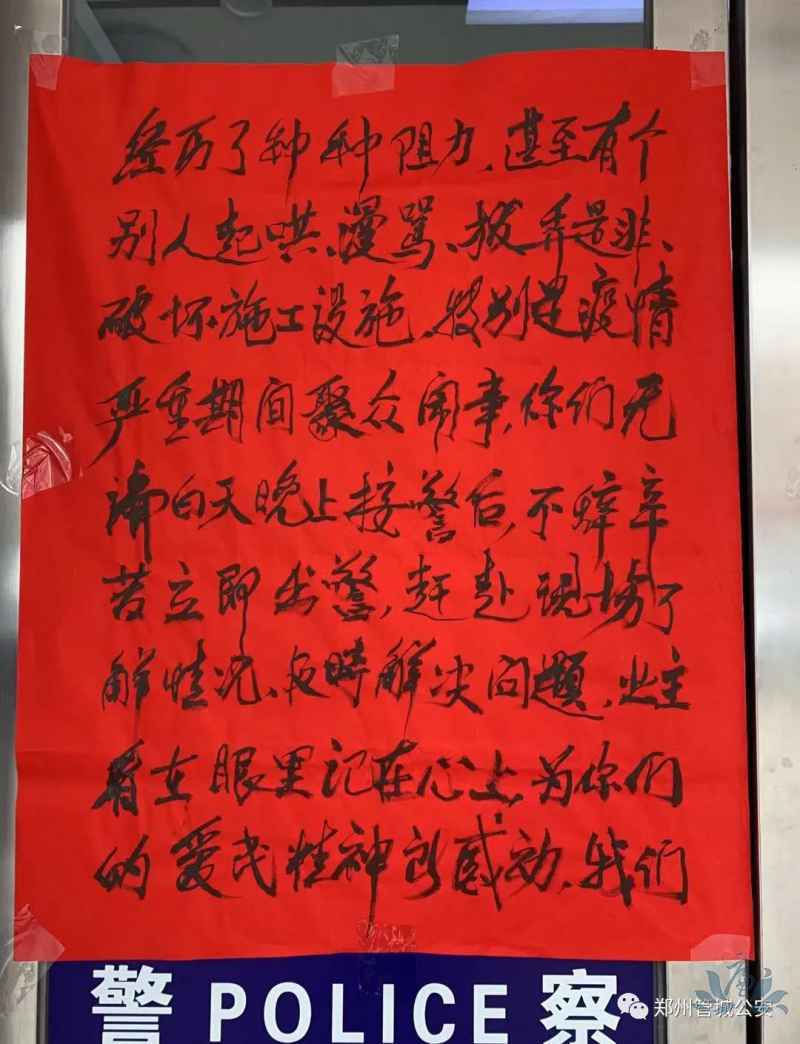 经历了种种阻力、甚至有个
别人起哄、漫骂、拨弄是非、
破坏施工设施，特别是疫情
严重期间聚众闹事，你们无
论白天晚上接警后，不辞辛
苦立即出警，赶赴现场了
解情况、及時解决问题，业主
看在眼里记在心上，为你们
的爱民精神所感动，我们
警 POLICE 察
郑州管城公安